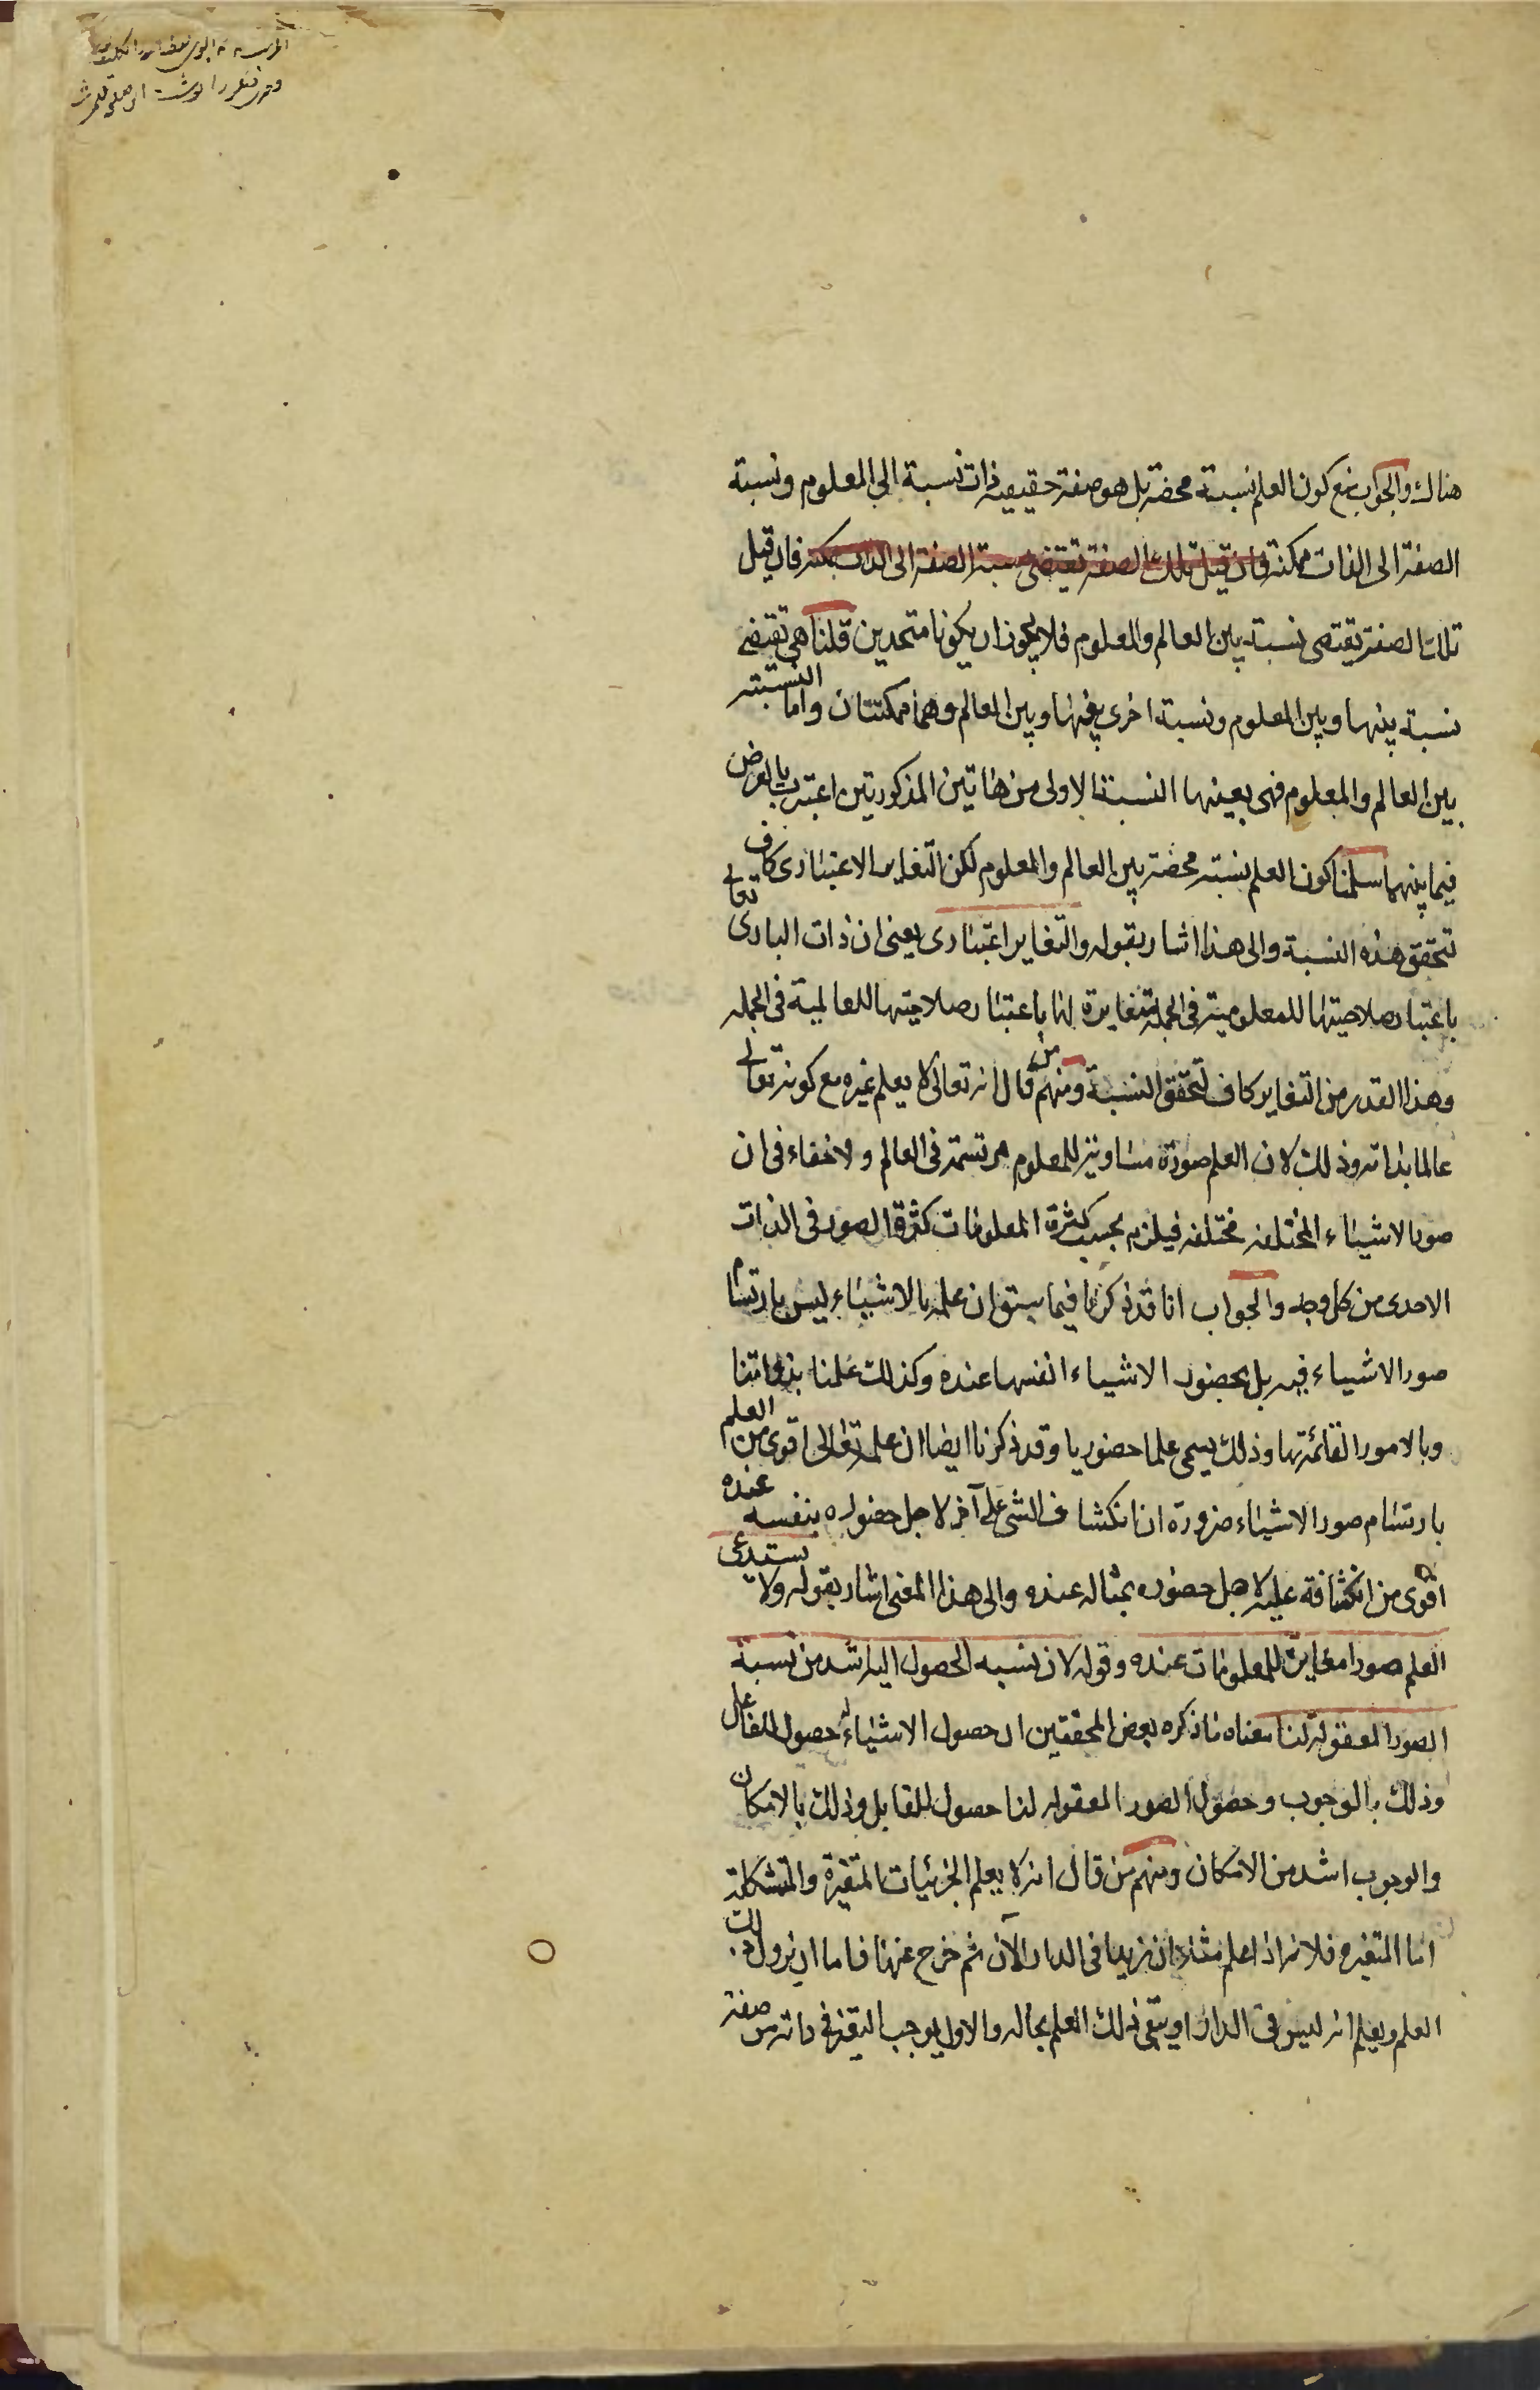 هناك والجواب منع كون العلم نسبة محضة بل هو صفة حقيقية ذات نسبة الى المعلوم ونسبة
الصفة الى الذات ممكنة فان قيل تلك الصفة تقتضى نسبة الصفة الى الذات ممكنة فان قيل
تلك الصفة يقتضى نسبة بين العالم والمعلوم فلا يجوز ان يكونا متحدين قلنا هى تقتضى
نسبة بينها وبين المعلوم ونسبة اخرى بينها وبين العالم وهما ممكنتان واما النسبة
بين العالم والمعلوم فهى بعينها النسبة الاولى من هاتين المذكورتين اعتبرت بالعرض
فيما بينهما سلمنا كون العلم نسبة محضة بين العالم والمعلوم لكن التغاير الاعتبارى كاف
لتحقق هذه النسبة والى هذا اشار بقوله والتغاير اعتبارى يعنى ان ذات البارى تعالى
باعتبار صلاحيتها للمعلومية فى الجملة متغايرة لها باعتبار صلاحيتها للعالمية فى الجملة
وهذا القدر من التغاير كاف لتحقق النسبة ومنهم من قال انه تعالى لا يعلم غيره مع كونه تعالى
عالما بذاته وذلك لان العلم صورة مساوية للمعلوم مرتسمة فى العالم ولا خفاء فى ان
صور الاشياء المختلفة مختلفة فيلزم بحسب كثرة المعلومات كثرة الصور فى الذات
الاحدى من كل وجه والجواب انا قد ذكرنا فيما سبق ان علمه بالاشياء ليس بارتسام
صور الاشياء فيه بل بحضور الاشياء انفسها عنده وكذلك علمنا بذواتنا
وبالامور القائمة بها وذلك يسمى علما حضوريا وقد ذكرنا ايضا ان علمه تعالى اقوى من العلم
بارتسام صور الاشياء ضرورة ان انكشاف الشى على آخر لاجل حضوره بنفسه عنده
اقوى من انكشافه عليه لاجل حضوره بمثاله عنده والى هذا المعنى اشار بقوله ولا يستدعى
العلم صورا مغايرة للمعلومات عنده وقوله لان نسبة الحصول اليه اشد من نسبة
الصور المعقولة لنا معناه ما ذكره بعض المحققين ان حصول الاشياء له حصول للفاعل
وذلك بالوجوب وحصول الصور المعقولة لنا حصول للقابل وذلك بالامكان
والوجوب اشد من الامكان ومنهم من قال انه لا يعلم الجزئيات المتغيرة والمتشكلة
اما المتغيرة فلانه اذا علم مثلا ان زيدا فى الدار الآن ثم خرج عنها فاما ان يزول ذلك
العلم ويعلم انه ليس فى الدار او يبقى ذلك العلم بحاله والاول يوجب التغير فى ذاته من صفة